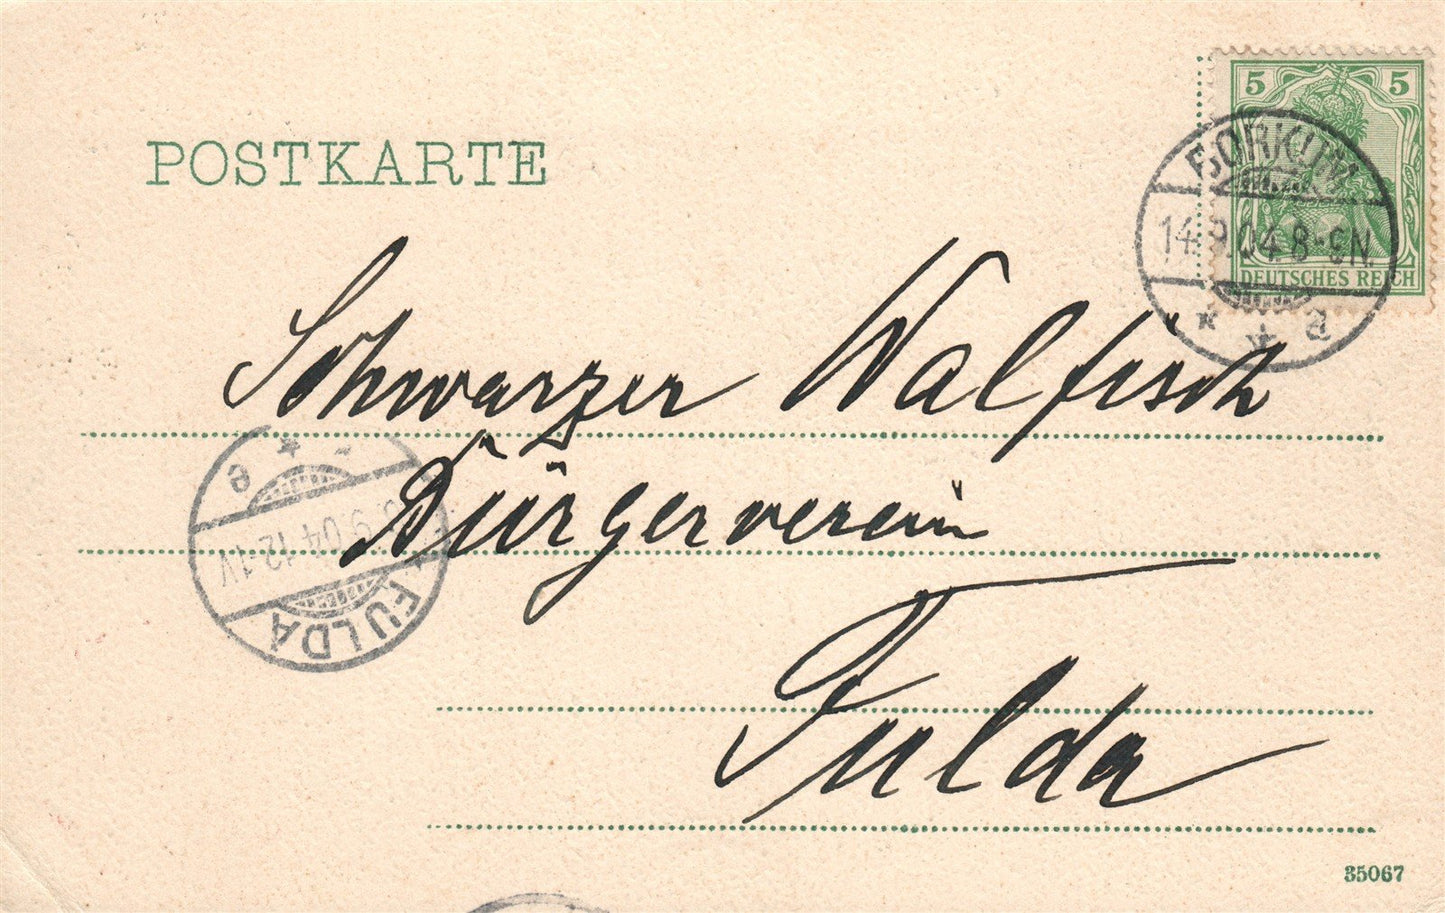 POSTKARTE
5 5
DEUTSCHES REICH
BORKUM
14.9.04.8-9N.
* * a
Schwarzer Walfisch
Bürgerverein
Fulda
FULDA
9.04.12-1V
* e
35067